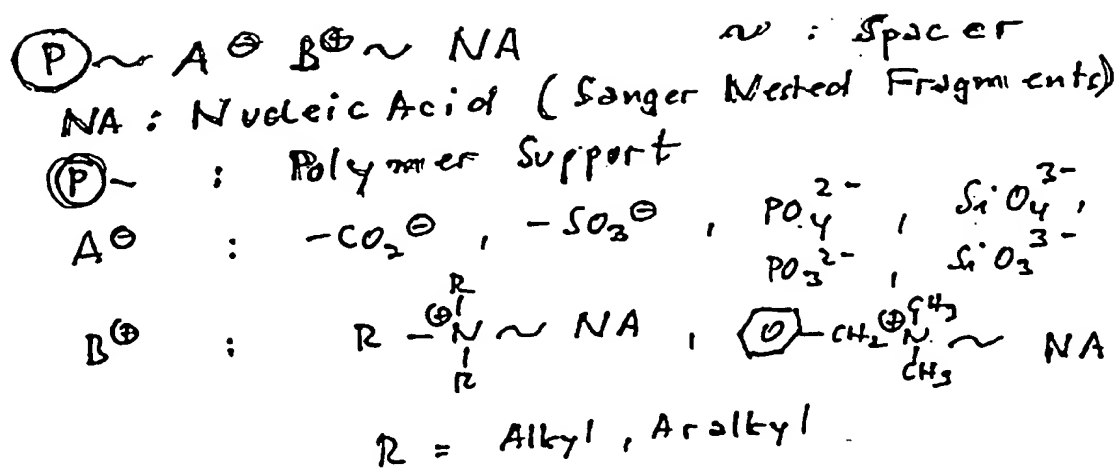 Ⓟ~ A⊖ B⊕ ~ NA    ~ : Spacer
NA : Nucleic Acid (Sanger Nested Fragments)
Ⓟ~ : Polymer Support
A⊖ : -CO₂⊖ , -SO₃⊖ , PO₄²⁻ , SiO₄³⁻ ,
PO₃²⁻ , SiO₃³⁻
R
B⊕ : R-⊕N ~ NA , -CH₂⊕N ~ NA
CH₃
R
CH₃
R = Alkyl , Aralkyl .